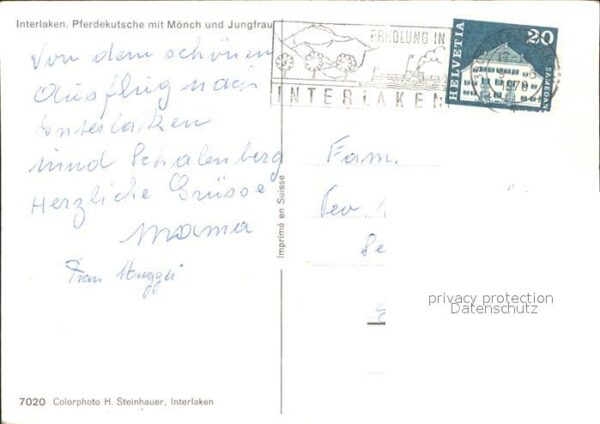 Interlaken. Pferdekutsche mit Mönch und Jungfrau
ERHOLUNG IN
INTERLAKEN
HELVETIA
20
SAMEDAN
Von dem schönen
Ausflug nach
Interlaken
und Schalenberg
Herzliche Grüsse
Mama
Frau
Fam.
Imprimé en Suisse
privacy protection
Datenschutz
7020 Colorphoto H. Steinhauer, Interlaken